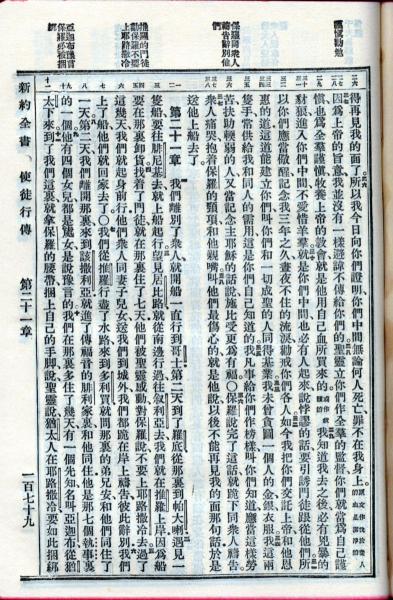 保羅同衆人禱告辭別他們
推羅的門徒勸保羅不要上耶路撒冷
得再見我的面了所以我今日向你們證明你們中間無論何人死亡、罪不在我身上。
因爲上帝的旨意我並沒有一樣避諱不傳給你們的聖靈立你們作全羣的監督你們就當爲自己謹
慎也爲全羣謹慎牧養上帝的教會就是他用自己血所買來的我知道我去之後必有兇暴的
豺狼進入你們中間不愛惜羊羣就是你們中間也必有人起來說悖謬的話要引誘門徒跟從他們所
以你們應當儆醒記念我三年之久晝夜不住的流淚勸戒你們各人如今我把你們交託上帝和他恩
惠的道這道能建立你們叫你們和一切成聖的人同得基業我未曾貪圖一個人的金銀衣服我這兩
隻手常供給我和同人的需用這是你們自己知道的我凡事給你們作榜樣叫你們知道應當這樣勞
苦扶助輭弱的人又當記念主耶穌的話說施比受更爲有福〇保羅說完了這話就跪下同衆人禱告
衆人痛哭抱着保羅的頸項和他親嘴叫他們最傷心的就是他說以後不能再見我的面那句話於是
送他上船去了
第二十一章 我們離別了衆人就開船一直行到哥士第二天到了羅底從那裏到帕大喇遇見一
隻船要往腓尼基去就上船起行望見居比路就從南邊行過往叙利亞去我們就在推羅上岸因爲船
要在那裏卸貨找着了門徒就在那裏住了七天他們被聖靈感動對保羅說不要上耶路撒冷去過了
這幾天我們就起身前行他們衆人同妻子兒女送我們到城外我們都跪在岸上禱告彼此辭別我們
上了船他們就回家去了〇我們從推羅行盡了水路來到多利買就問那裏的弟兄安和他們同住了
一天第二天我們離開那裏來到該撒利亞就進了傳福音的腓利家裏和他同住他是那七個執事裏
的一個他有四個女兒都是處女是說豫言的我們在那裏多住了幾天有一個先知名叫亞迦布從猶
太下來到了我們這裏就拿保羅的腰帶捆上自己的手脚說聖靈說猶太人在耶路撒冷要如此捆綁
新約全書、使徒行傳 第二十一章 一百七十九